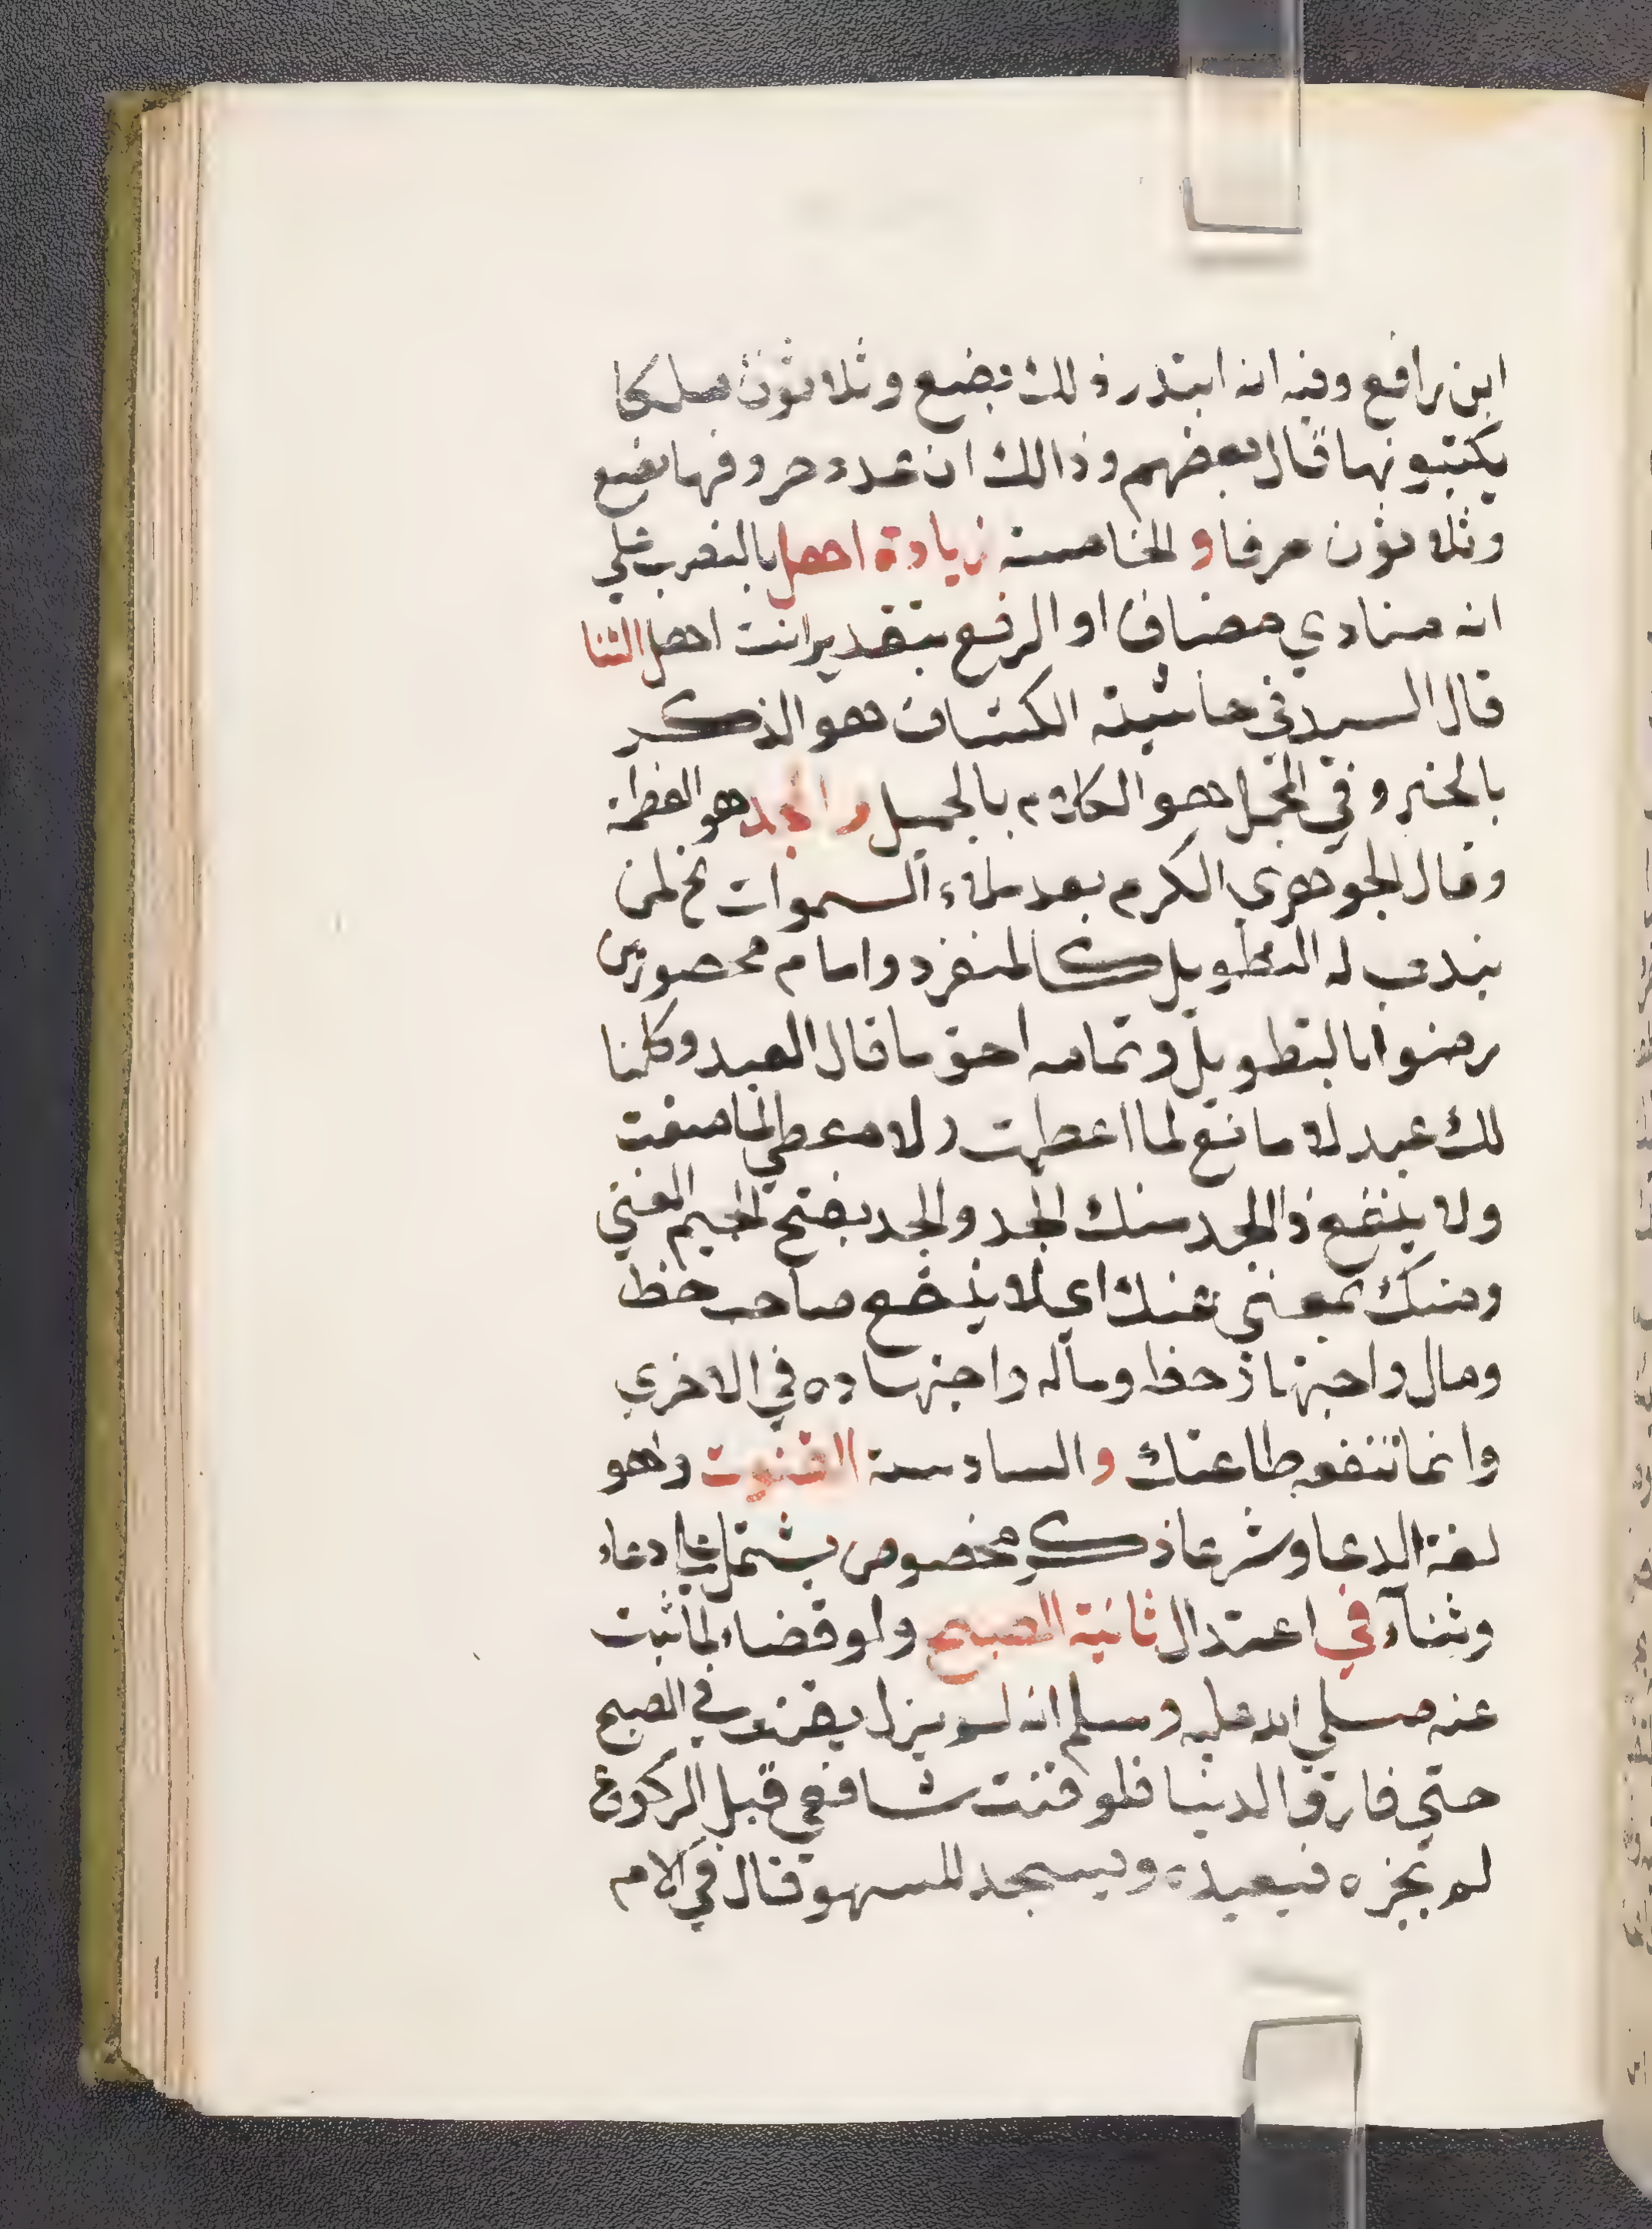 ابن رافع وفيه انه ابتدر ذلك بضع وثلاثون ملكا
يكتبونها قال بعضهم وذالك ان عدد حروفها بضع
وثلاثون حرفا و الخامسة زيادة اهل بالنصب علي
انه منادي مضاف او الرفع بتقدير انت اهل الثنا
قال السيد في حاشية الكشاف هو الذكر
بالخير وفي المجمل هو الكلام بالجميل والمجد هو العظمة
وقال الجوهري الكرم بعد ملاء السموات لمن
يندب له التطويل كالمنفرد وامام محصورين
رضوا بالتطويل وتمامه احق ما قال العبد وكلنا
لك عبد لا مانع لما اعطيت ولا معطي لما منعت
ولا ينفع ذا الجد منك الجد والجد بفتح الجيم الغني
ومنك بمعني عندك اي لا ينفع صاحب حظ
ومال واجتهاد حظه وماله واجتهاده في الاخري
وانما تنفعه طاعتك والسادسة القنوت وهو
لغة الدعا وشرعا ذكر مخصوص يشتمل علي دعاء
وثناء في اعتدال ثانية الصبح ولو قضاء لما ثبت
عنه صلي الله عليه وسلم انه لم يزل يقنت في الصبح
حتي فارق الدنيا فلو قنت شافعي قبل الركوع
لم يجزه فيعيده ويسجد للسهو قال في الام